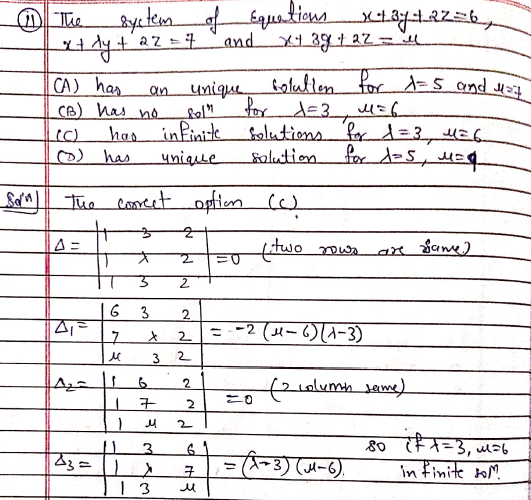 (11) The system of Equations x+3y+2z=6,
x+λy+2z=7 and x+3y+2z=μ
(A) has an unique solution for λ=5 and μ=7
(B) has no solⁿ for λ=3, μ=6
(C) has infinite solutions for λ=3, μ=6
(D) has unique solution for λ=5, μ=9
Solⁿ] The correct option (C)
Δ = | 1 3 2 |
| 1 λ 2 | = 0 (two rows are same)
| 1 3 2 |
Δ₁ = | 6 3 2 |
| 7 λ 2 | = -2(μ-6)(λ-3)
| μ 3 2 |
Δ₂ = | 1 6 2 |
| 1 7 2 | = 0 (2 column same)
| 1 μ 2 |
Δ₃ = | 1 3 6 | so if λ=3, μ=6
| 1 λ 7 | = (λ-3)(μ-6). infinite solⁿ.
| 1 3 μ |